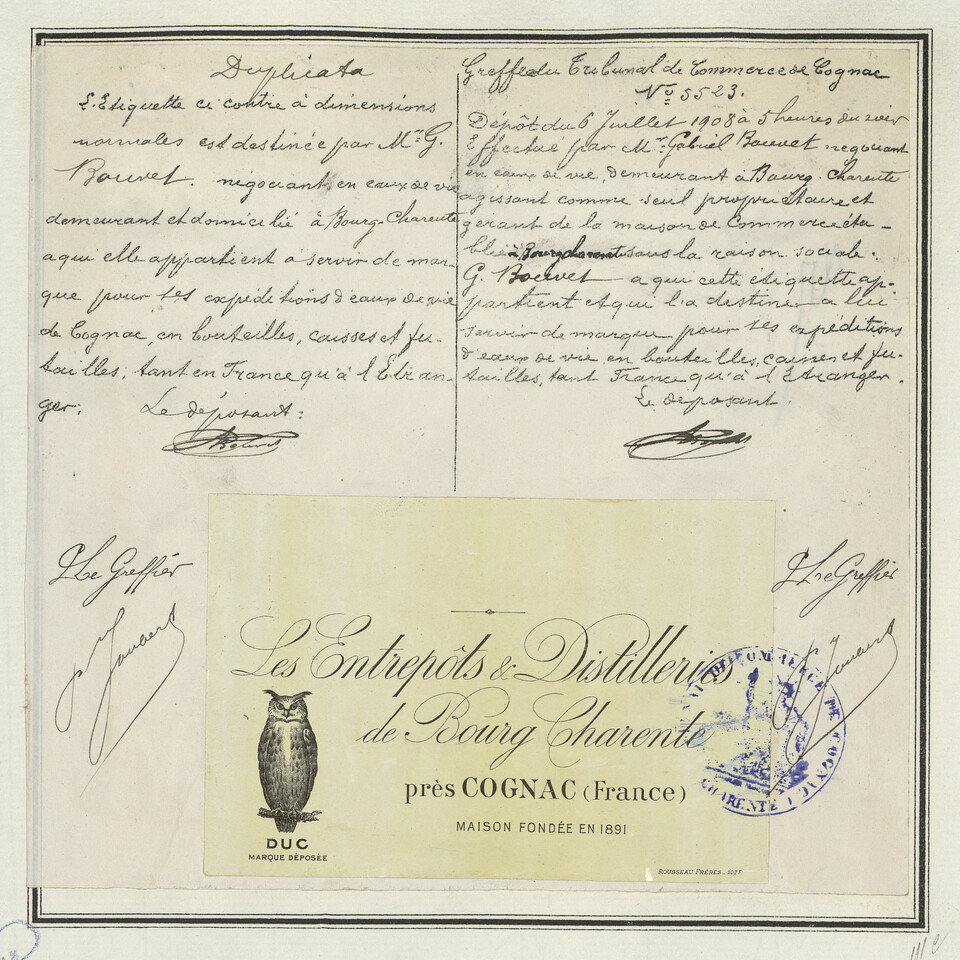 Duplicata
L'Etiquette ci contre à dimensions
normales est destinée par Mr. G.
Bouvet. negociant en eaux de vie
demeurant et domicilié à Bourg-Charente
a qui elle appartient a servir de mar-
que pour ses expeditions d'eaux de vie
de Cognac, en bouteilles, caisses et fu-
tailles, tant en France qu'à l'Etran-
ger;
Le déposant:
Greffe du Tribunal de Commerce de Cognac
No 5523.
Dépôt du 6 Juillet 1908 à 5 heures du soir
Effectué par Mr. Gabriel Bouvet negociant
en eaux de vie, demeurant à Bourg-Charente
agissant comme seul propriétaire et
gerant de la maison de Commerce éta-
blie à Bourg sous la raison sociale.
G. Bouvet a qui cette étiquette ap-
partient et qui l'a destine a lui
servir de marque pour ses expéditions
d'eaux de vie, en bouteilles, caisses et fu-
tailles, tant France qu'à l'Etranger.
Le déposant.
Le Greffier
Le Greffier
Les Entrepôts & Distilleries
de Bourg Charente
près COGNAC (France)
MAISON FONDÉE EN 1891
DUC
MARQUE DÉPOSÉE
ROUSSEAU FRÈRES. 1077
COMMERCE DE COGNAC
CHARENTE